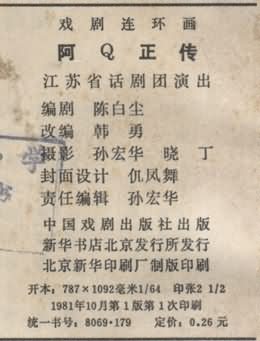 戏剧连环画
阿Q正传
江苏省话剧团演出
编剧 陈白尘
改编 韩勇
摄影 孙宏华 晓丁
封面设计 仉凤舞
责任编辑 孙宏华
中国戏剧出版社出版
新华书店北京发行所发行
北京新华印刷厂制版印刷
开本：787×1092毫米1/64 印张2 1/2
1981年10月第1版第1次印刷
统一书号：8069·179 定价：0.26元
学